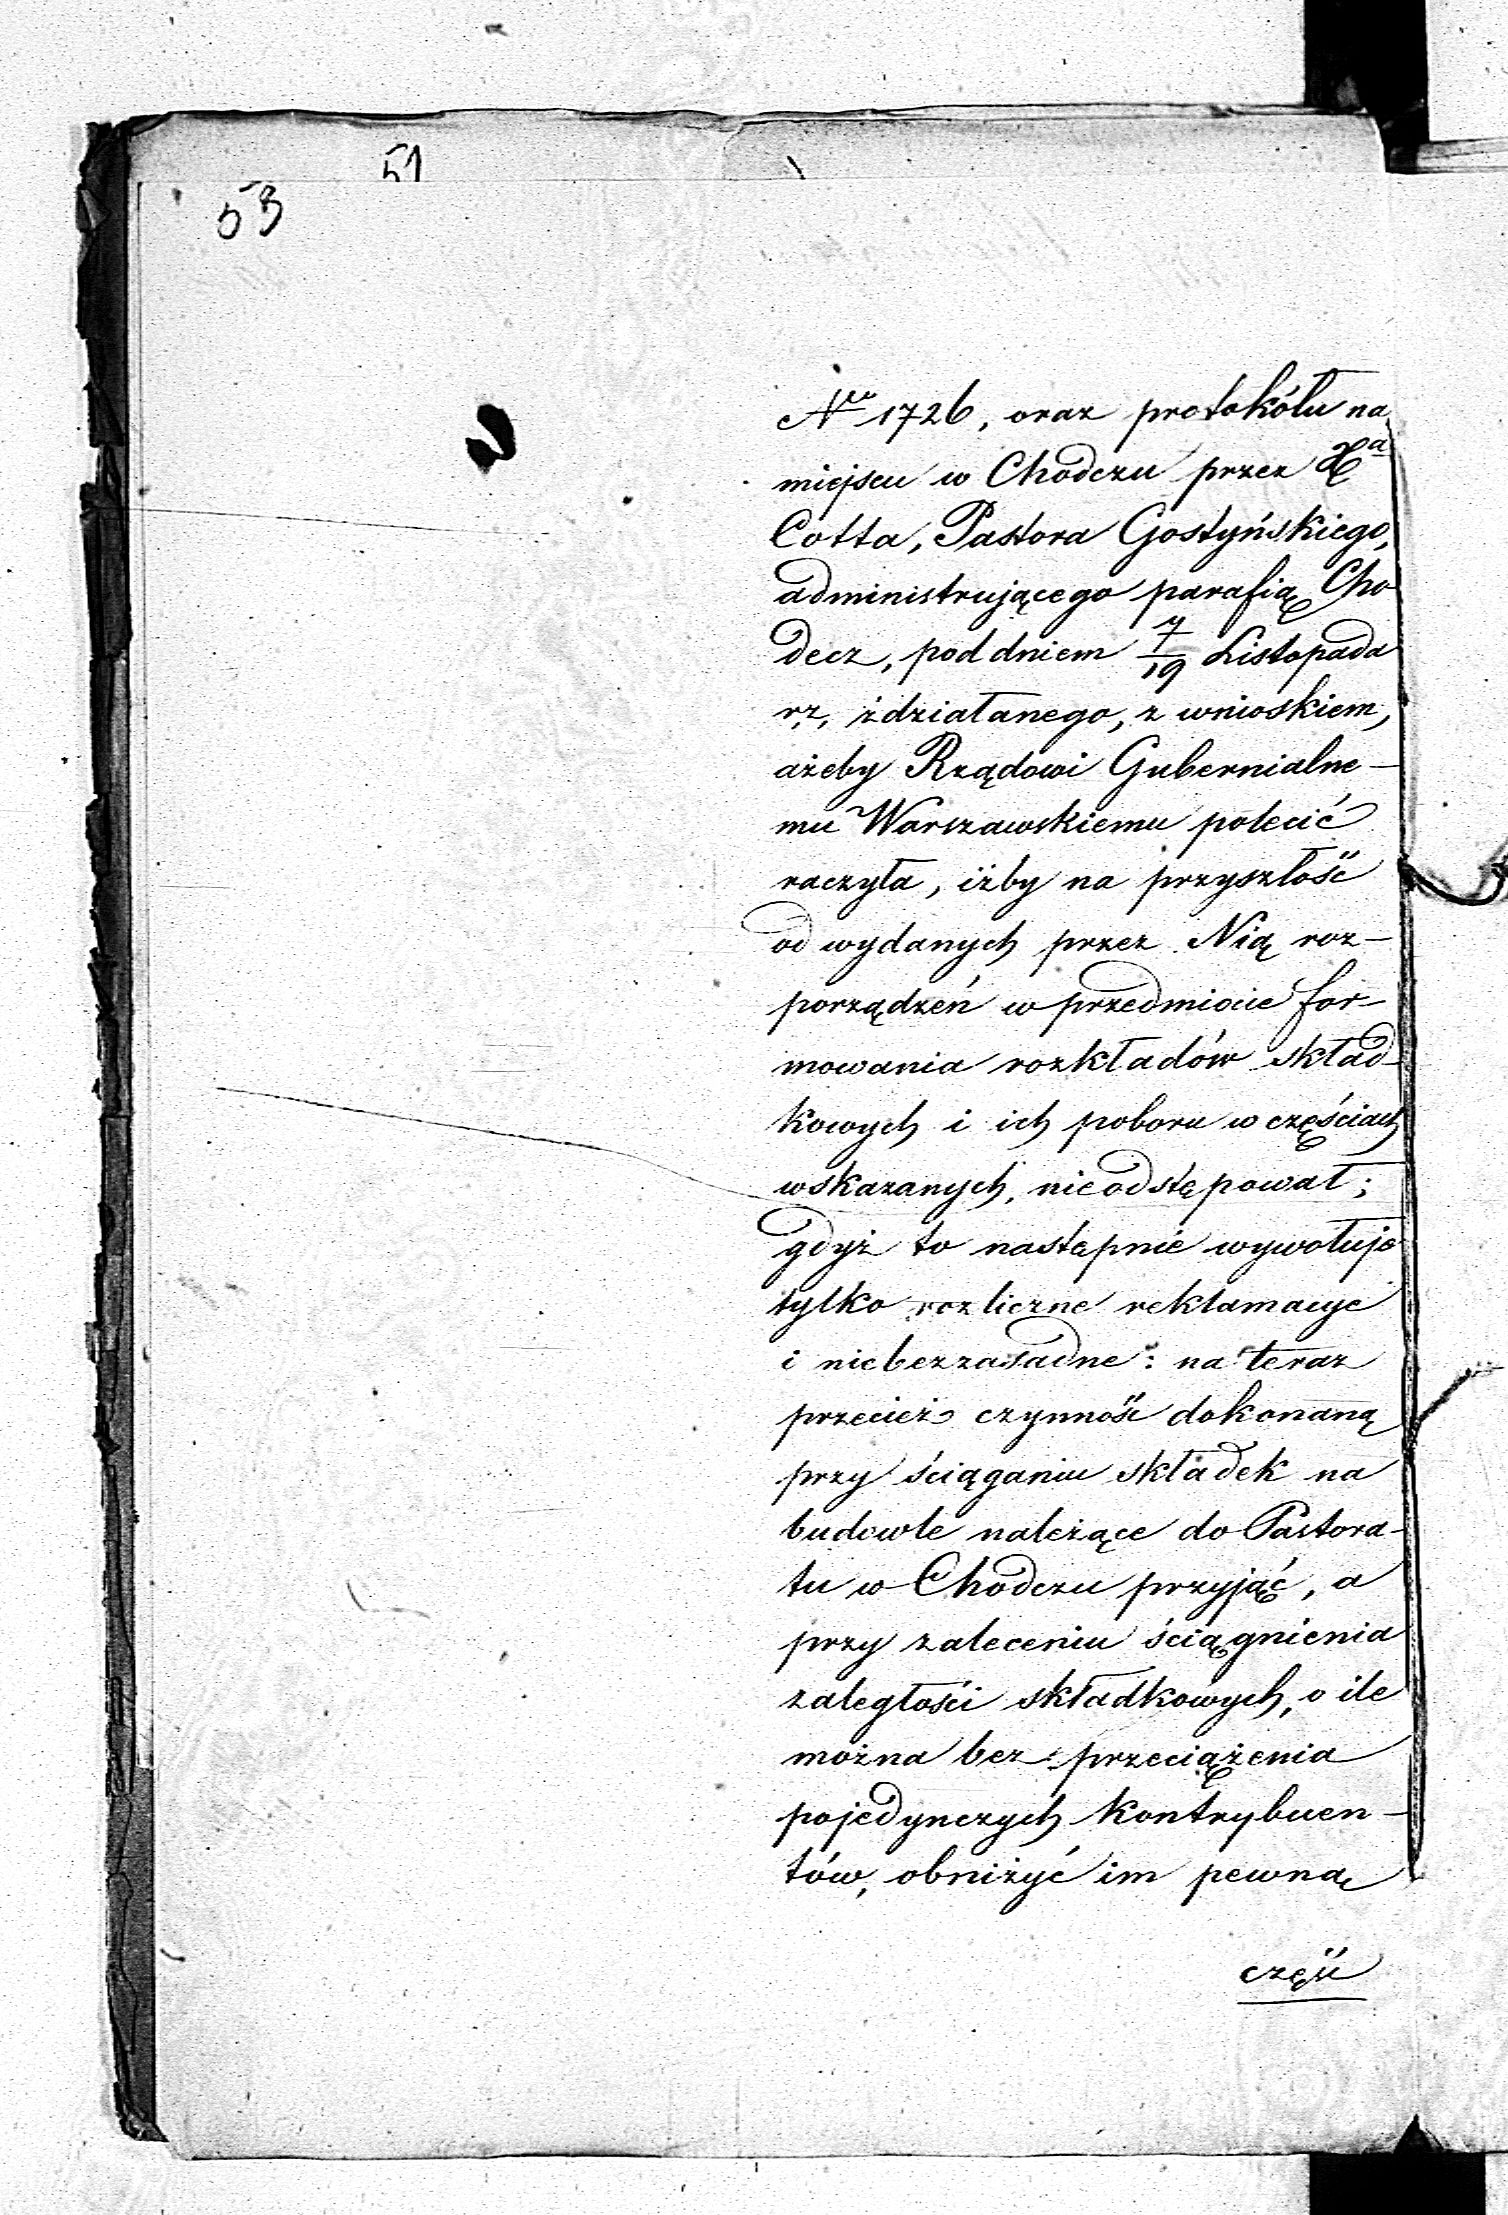 51
53
Nru 1726, oraz protokółu na
miejscu w Chodczu przez Xa
Cotta, Pastora Gostyńskiego,
administrującego parafią Cho
decz, pod dniem 7/19 Listopada
r.z. zdziałanego, z wnioskiem,
ażeby Rządowi Gubernialne-
mu Warszawskiemu polecić
raczyła, iżby na przyszłość
od wydanych przez Nią roz-
porządzeń w przedmiocie for-
mowania rozkładów skład-
kowych i ich poboru w częściach
wskazanych, nie odstępował;
gdyż to następnie wywołuje
tylko rozliczne reklamacye
i niebezzasadne: na teraz
przecież czynność dokonaną
przy ściąganiu składek na
budowle należące do Pastora-
tu w Chodczu przyjąć, a
przy zaleceniu ściągnienia
zaległości składkowych, o ile
można bez przeciążenia
pojedynczych kontrybuen-
tów, obniżyć im pewną
część